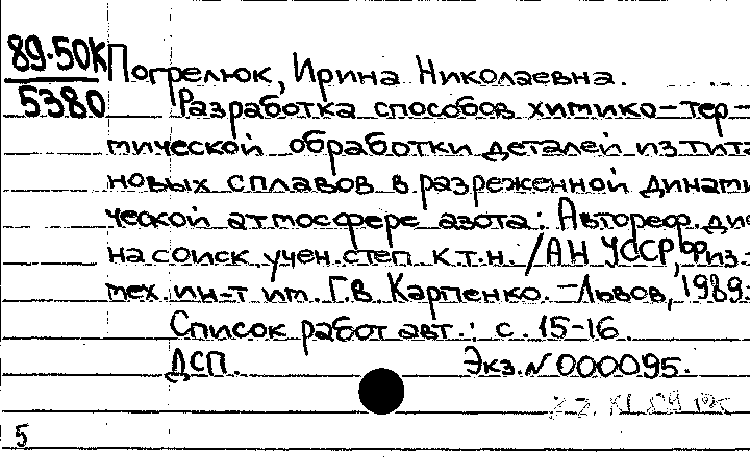 89-50К Погрелюк, Ирина Николаевна.
5380 Разработка способов химико-тер-
мической обработки деталей из тита
новых сплавов в разреженной динами
ческой атмосфере азота: Автореф. дис
на соиск учен. степ. к.т.н. /АН УССР, Физ.-
мех. ин-т им. Г.В. Карпенко. - Львов, 1989.
Список работ авт.: с. 15-16.
ДСП. Экз. № 000095.
5